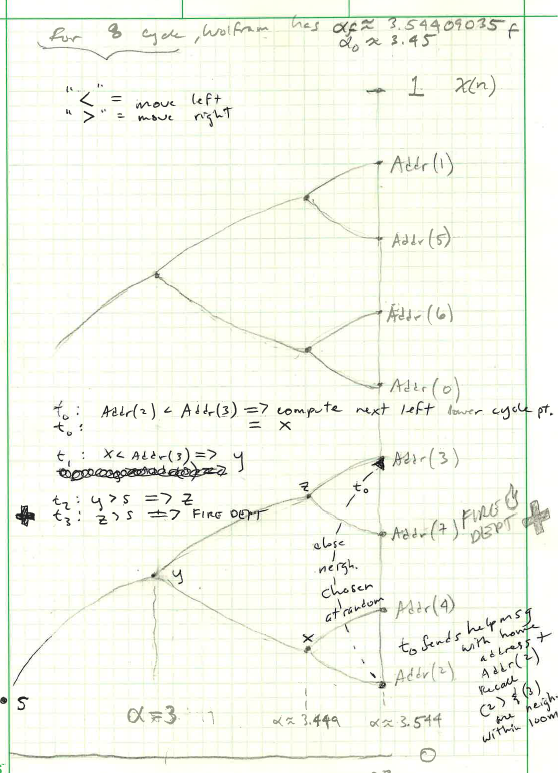 For 8 cycle, Wolfram has αf ≈ 3.54409035
α0 ≈ 3.45
"<" = move left
">" = move right
1 X(n)
Addr(1)
Addr(5)
Addr(6)
Addr(0)
t0: Addr(2) < Addr(3) => compute next left lower cycle pt.
t0: = x
t1: x < Addr(3) => y
t2: y > s => z
t3: z > s => FIRE DEPT
Addr(3)
z
t0
Addr(7)
FIRE
DEPT
close
neigh.
chosen
at random
y
Addr(4)
x
Addr(2)
t0 sends help msg
with home
address +
Addr(2)
Recall
(2) & (3)
are neigh.
within 100m
S
α = 3
α ≈ 3.449
α ≈ 3.544
0